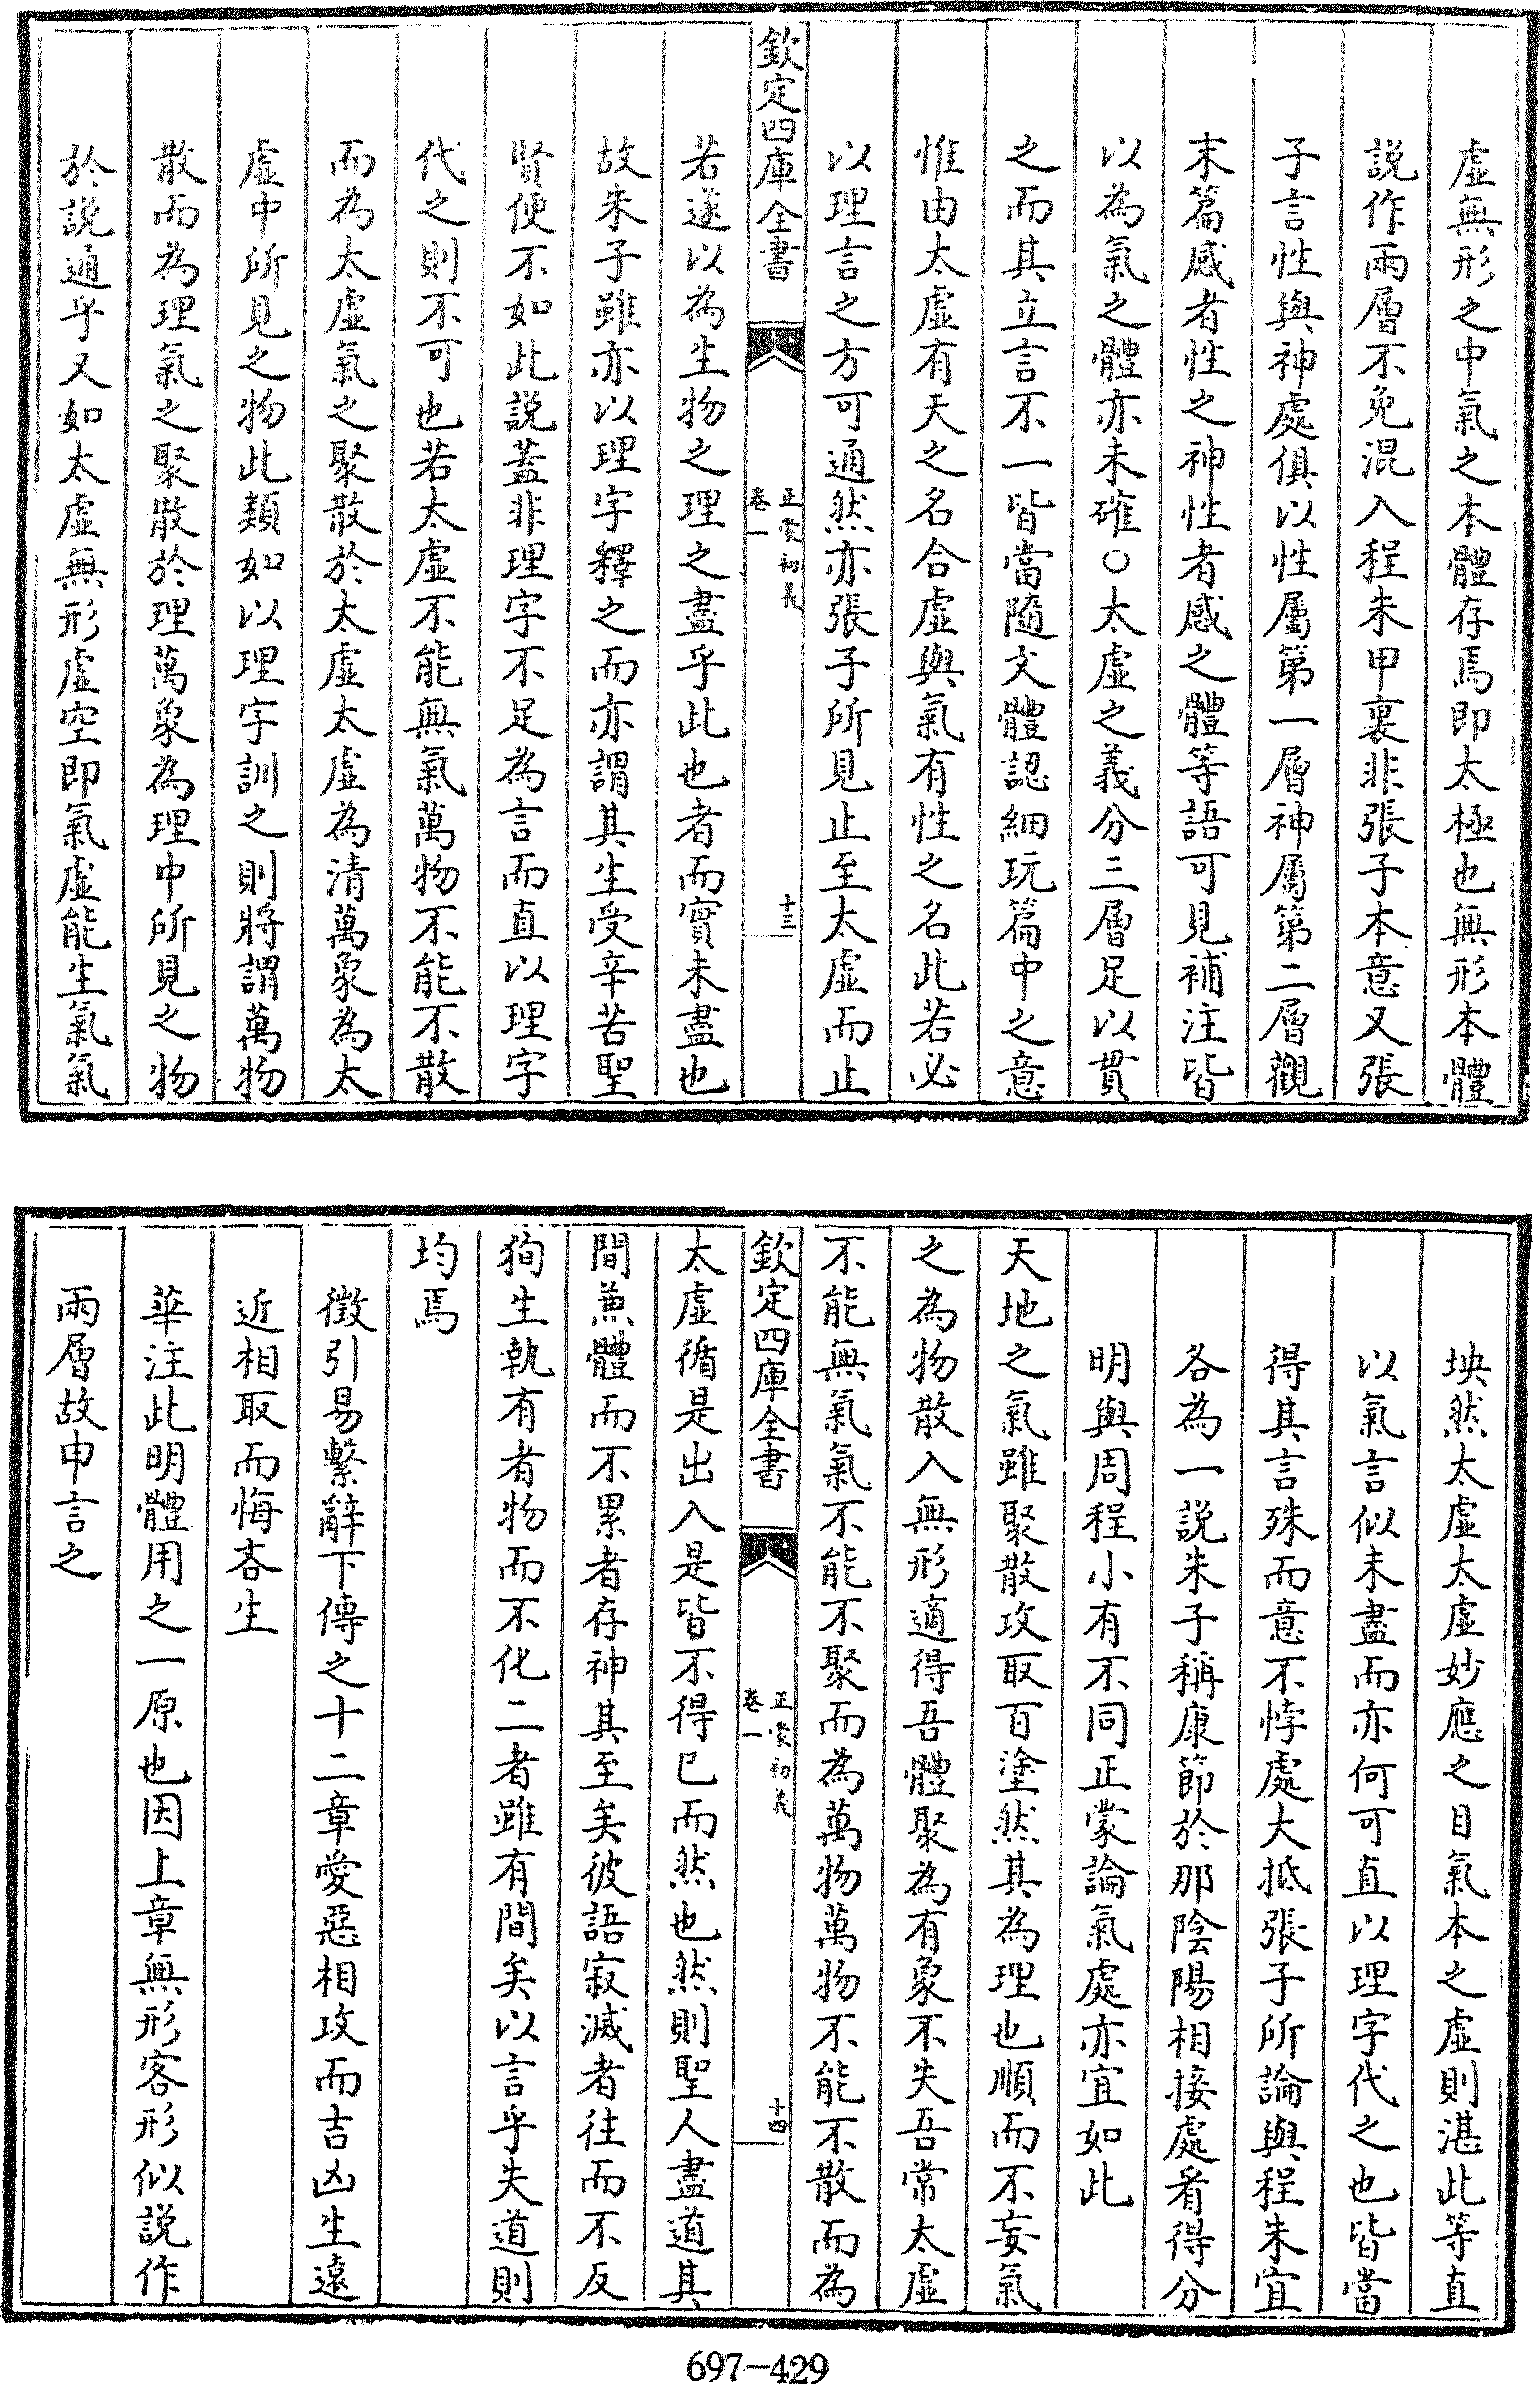 虛無形之中氣之本體存焉即太極也無形本體
説作兩層不免混入程朱甲裏非張子本意又張
子言性與神處俱以性屬第一層神屬第二層觀
末篇感者性之神性者感之體等語可見補注皆
以為氣之體亦未確○太虛之義分三層足以貫
之而其立言不一皆當隨文體認細玩篇中之意
惟由太虛有天之名合虛與氣有性之名此若必
以理言之方可通然亦張子所見止至太虛而止
欽定四庫全書
正蒙初義
卷一
十三
若遂以為生物之理之盡乎此也者而實未盡也
故朱子雖亦以理字釋之而亦謂其生受辛苦聖
賢便不如此説蓋非理字不足為言而直以理字
代之則不可也若太虛不能無氣萬物不能不散
而為太虛氣之聚散於太虛太虛為清萬象為太
虛中所見之物此類如以理字訓之則將謂萬物
散而為理氣之聚散於理萬象為理中所見之物
於説通乎又如太虛無形虛空即氣虛能生氣氣
坱然太虛太虛妙應之目氣本之虛則湛此等直
以氣言似未盡而亦何可直以理字代之也皆當
得其言殊而意不悖處大抵張子所論與程朱宜
各為一説朱子稱康節於那陰陽相接處看得分
明與周程小有不同正蒙論氣處亦宜如此
天地之氣雖聚散攻取百塗然其為理也順而不妄氣
之為物散入無形適得吾體聚為有象不失吾常太虛
不能無氣氣不能不聚而為萬物萬物不能不散而為
欽定四庫全書
正蒙初義
卷一
十四
太虛循是出入是皆不得已而然也然則聖人盡道其
間兼體而不累者存神其至矣彼語寂滅者往而不反
狥生執有者物而不化二者雖有間矣以言乎失道則
均焉
徵引易繫辭下傳之十二章愛惡相攻而吉凶生遠
近相取而悔吝生
華注此明體用之一原也因上章無形客形似説作
兩層故申言之
697-429